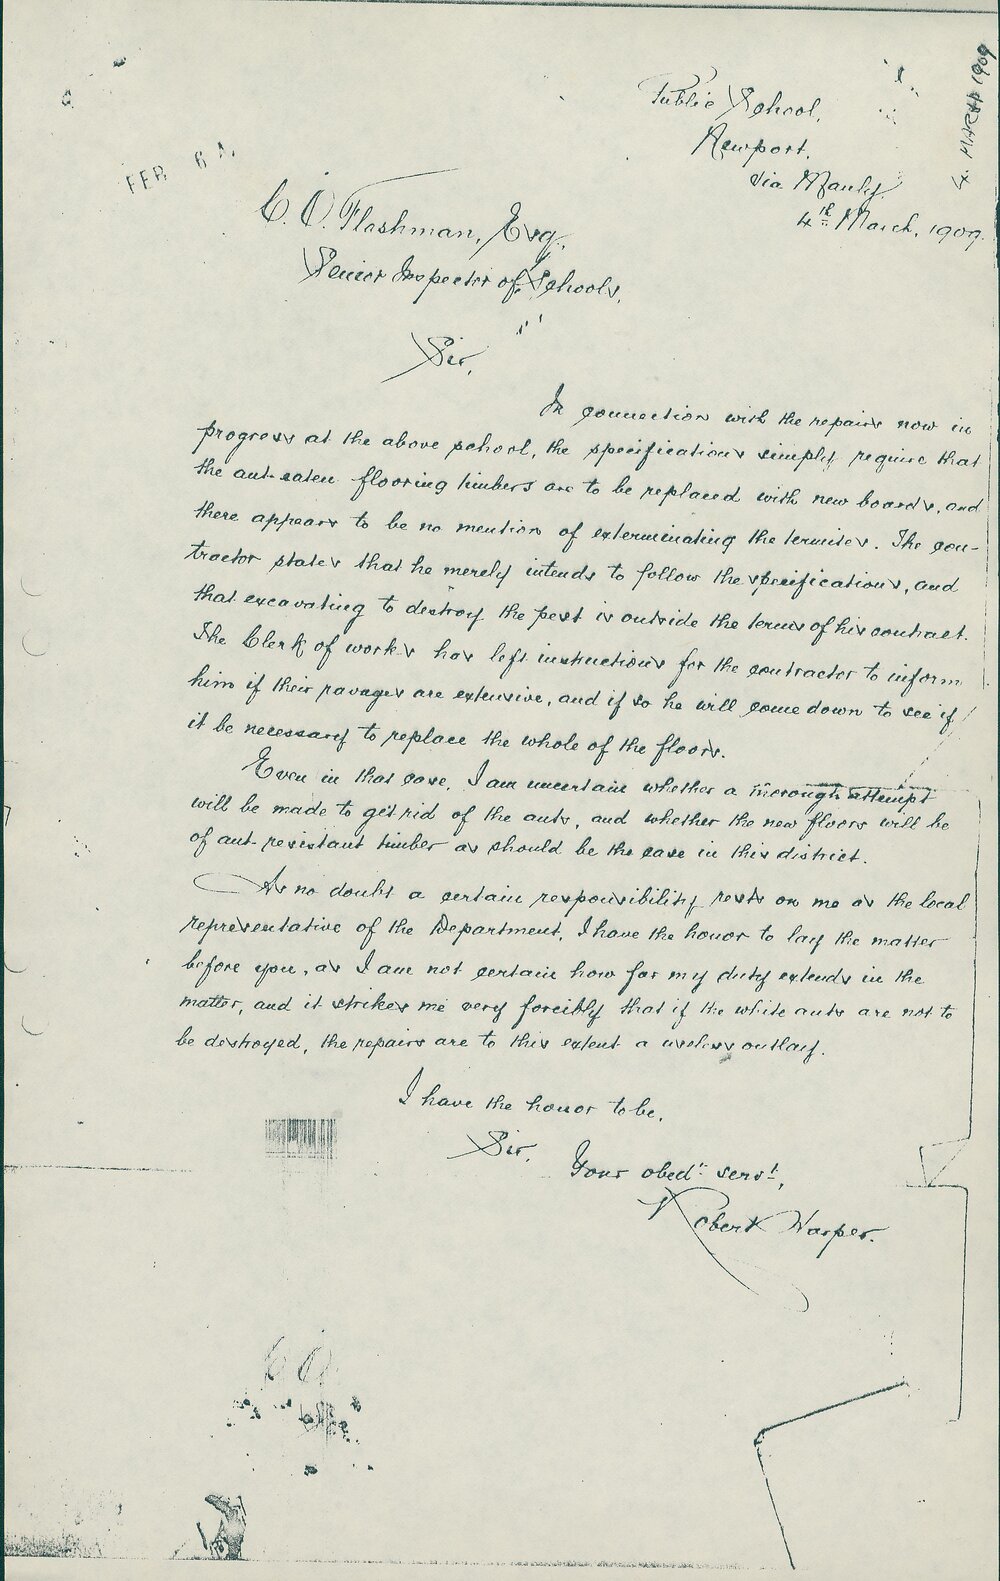 4 MARCH 1909
Public School,
Newport,
via Manly.
4th March, 1909.
FEB
C. O. Flashman, Esq.,
Senior Inspector of Schools,
Sir,
In connection with the repairs now in
progress at the above school, the specifications simply require that
the ant-eaten flooring timbers are to be replaced with new boards, and
there appears to be no mention of exterminating the termites. The con-
tractor states that he merely intends to follow the specifications, and
that excavating to destroy the pest is outside the terms of his contract.
The Clerk of works has left instructions for the contractor to inform
him if their ravages are extensive, and if so he will come down to see if
it be necessary to replace the whole of the floors.
Even in that case, I am uncertain whether a thorough attempt
will be made to get rid of the ants, and whether the new floors will be
of ant-resistant timber as should be the case in this district.
As no doubt a certain responsibility rests on me as the local
representative of the Department, I have the honor to lay the matter
before you, as I am not certain how far my duty extends in the
matter, and it strikes me very forcibly that if the white ants are not to
be destroyed, the repairs are to this extent a useless outlay.
I have the honor to be,
Sir,
Your obedt. servt.,
Robert Harper.